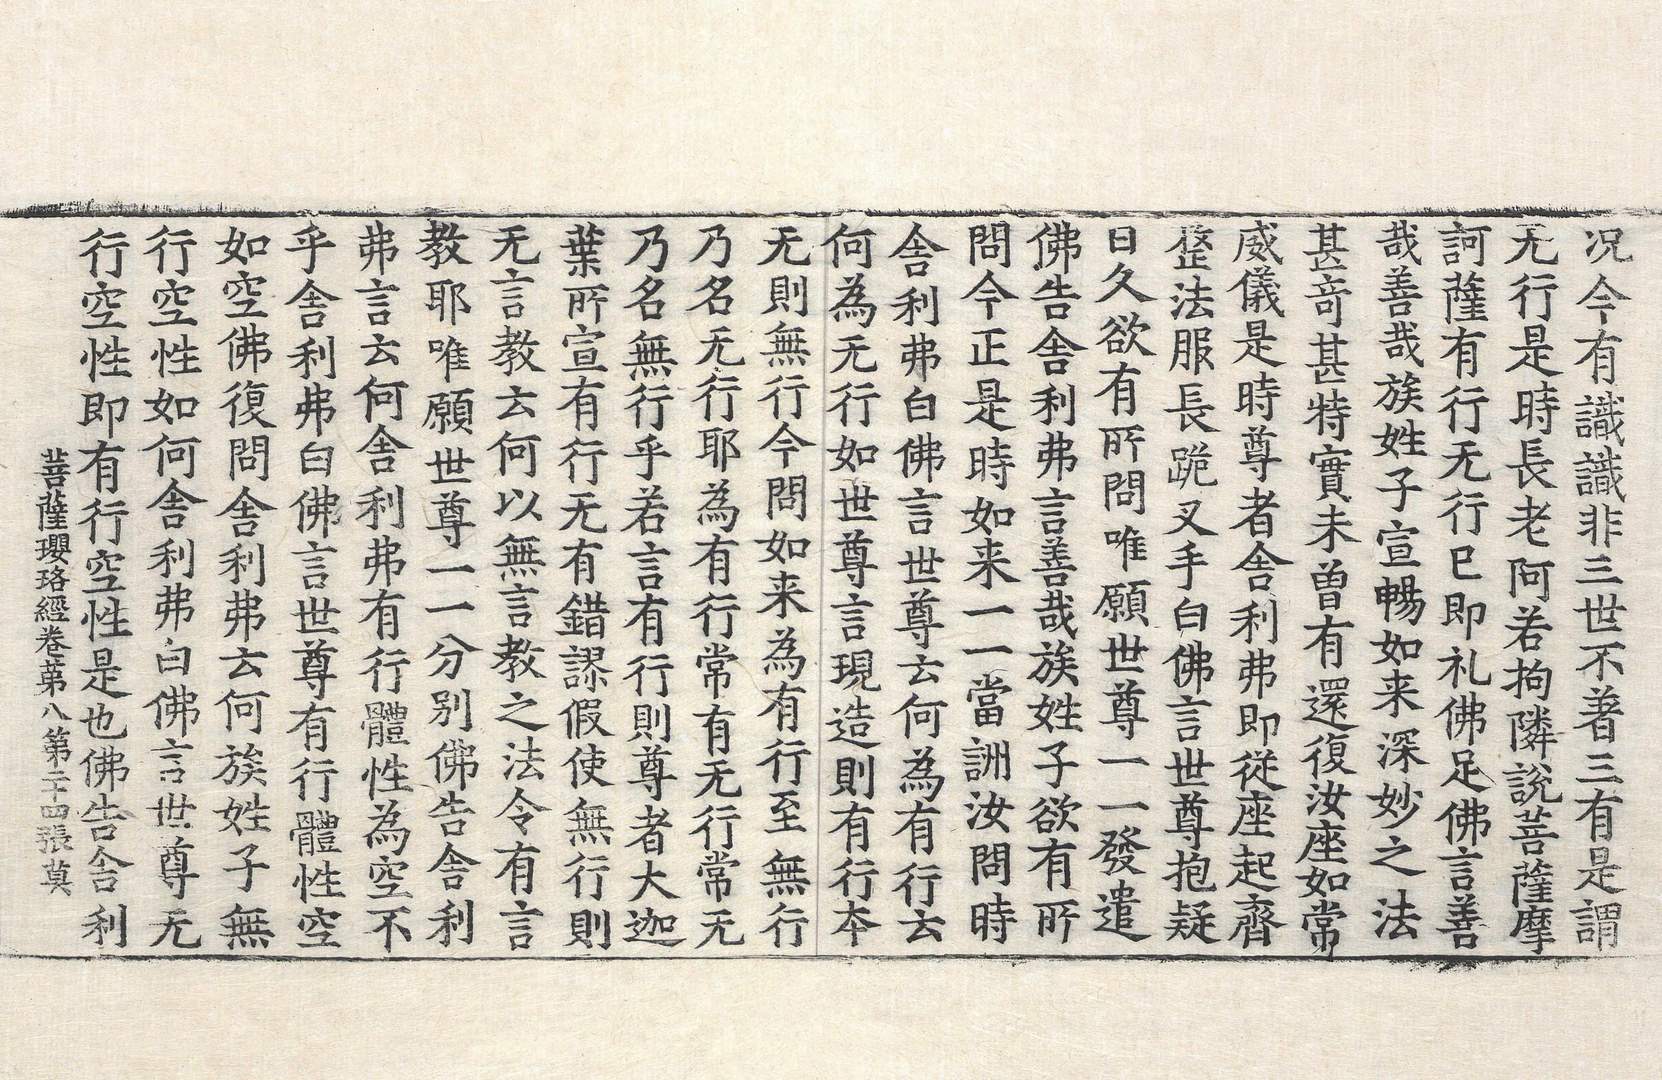 况今有識識非三世不著三有是謂
无行是時長老阿若拘隣說菩薩摩
訶薩有行无行已即礼佛足佛言善
哉善哉族姓子宣暢如来深妙之法
甚奇甚特實未曽有還復汝座如常
威儀是時尊者舍利弗即從座起齊
整法服長跪叉手白佛言世尊抱疑
日久欲有所問唯願世尊一一發遣
佛告舍利弗言善哉族姓子欲有所
問今正是時如来一一當詶汝問時
舍利弗白佛言世尊云何為有行云
何為无行如世尊言現造則有行本
无則無行今問如来為有行至無行
乃名无行耶為有行常有无行常无
乃名無行乎若言有行則尊者大迦
葉所宣有行无有錯謬假使無行則
无言教云何以無言教之法令有言
教耶唯願世尊一一分别佛告舍利
弗言云何舍利弗有行體性為空不
乎舍利弗白佛言世尊有行體性空
如空佛復問舍利弗云何族姓子無
行空性如何舍利弗白佛言世尊无
行空性即有行空性是也佛告舍利
菩薩瓔珞經卷苐八第二十四張莫